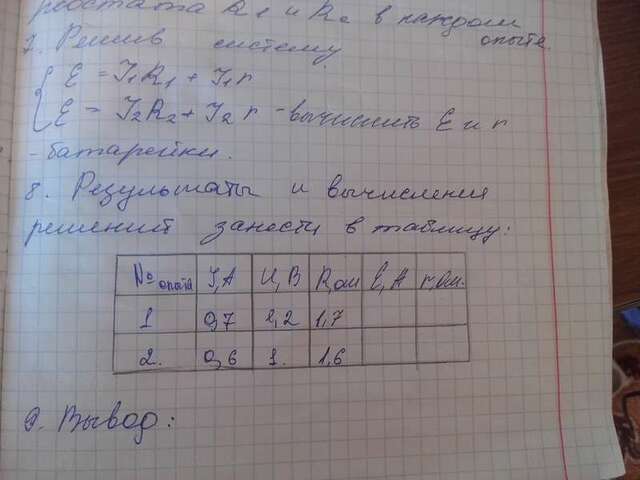 реостата R1 и R2 в каждом
опыте.
7. Решив систему
E = I1R1 + I1r
E = I2R2 + I2r - вычислить E и r
- батарейки.
8. Результаты и вычисления
решений занести в таблицу:
№ опыта I,A U,B R,ом E,A r,Ом.
1 0,7 1,2 1,7
2. 0,6 1. 1,6
9. Вывод: